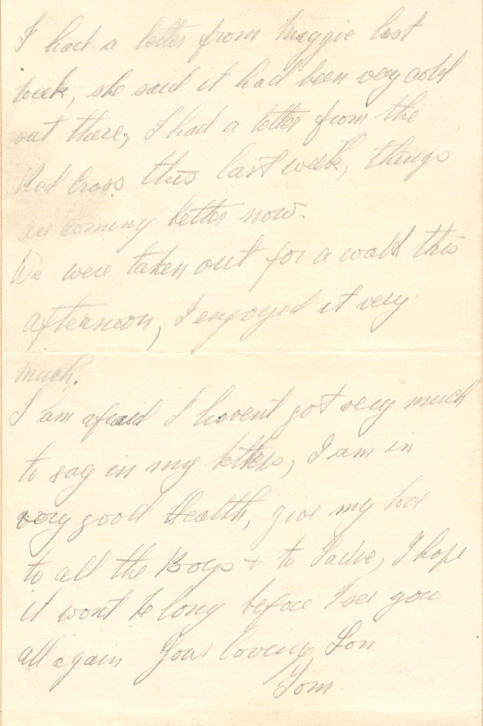 I had a letter from Maggie last
week, she said it had been very cold
out there, I had a letter from the
Red Cross this last week, things
are coming better now.
We were taken out for a walk this
afternoon, I enjoyed it very
much.
I am afraid I havent got very much
to say in my letters, I am in
very good Health, give my love
to all the Boys + to I hope
it wont be long before I see you
all again Your loving Son
Tom.